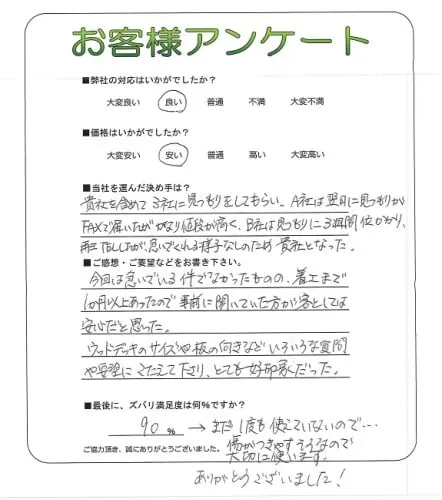 お客様アンケート
■弊社の対応はいかがでしたか?
大変良い 良い 普通 不満 大変不満
■価格はいかがでしたか?
大変安い 安い 普通 高い 大変高い
■当社を選んだ決め手は?
貴社を含めて3社に見つもりをしてもらい、A社は翌日に見つもりが
FAXで届いたがかなり値段が高く、B社は見つもりに3週間位かかり、
TELしたが、急いでくれる様子なしのため貴社となった。
■ご感想・ご要望などをお書き下さい。
今回は急いでいる件でなかったものの、着工まで
1か月以上あったので事前に聞いていた方が客としては
安心だと思った。
ウッドデッキのサイズや板の向きなどいろいろな質問
や要望にこたえて下さり、とても好印象だった。
■最後に、ズバリ満足度は何%ですか?
90 % → まだ1度も使えていないので…
傷がつきやすそうなので
ご協力頂き、誠にありがとうございました。 大切に使います。
ありがとうございました!